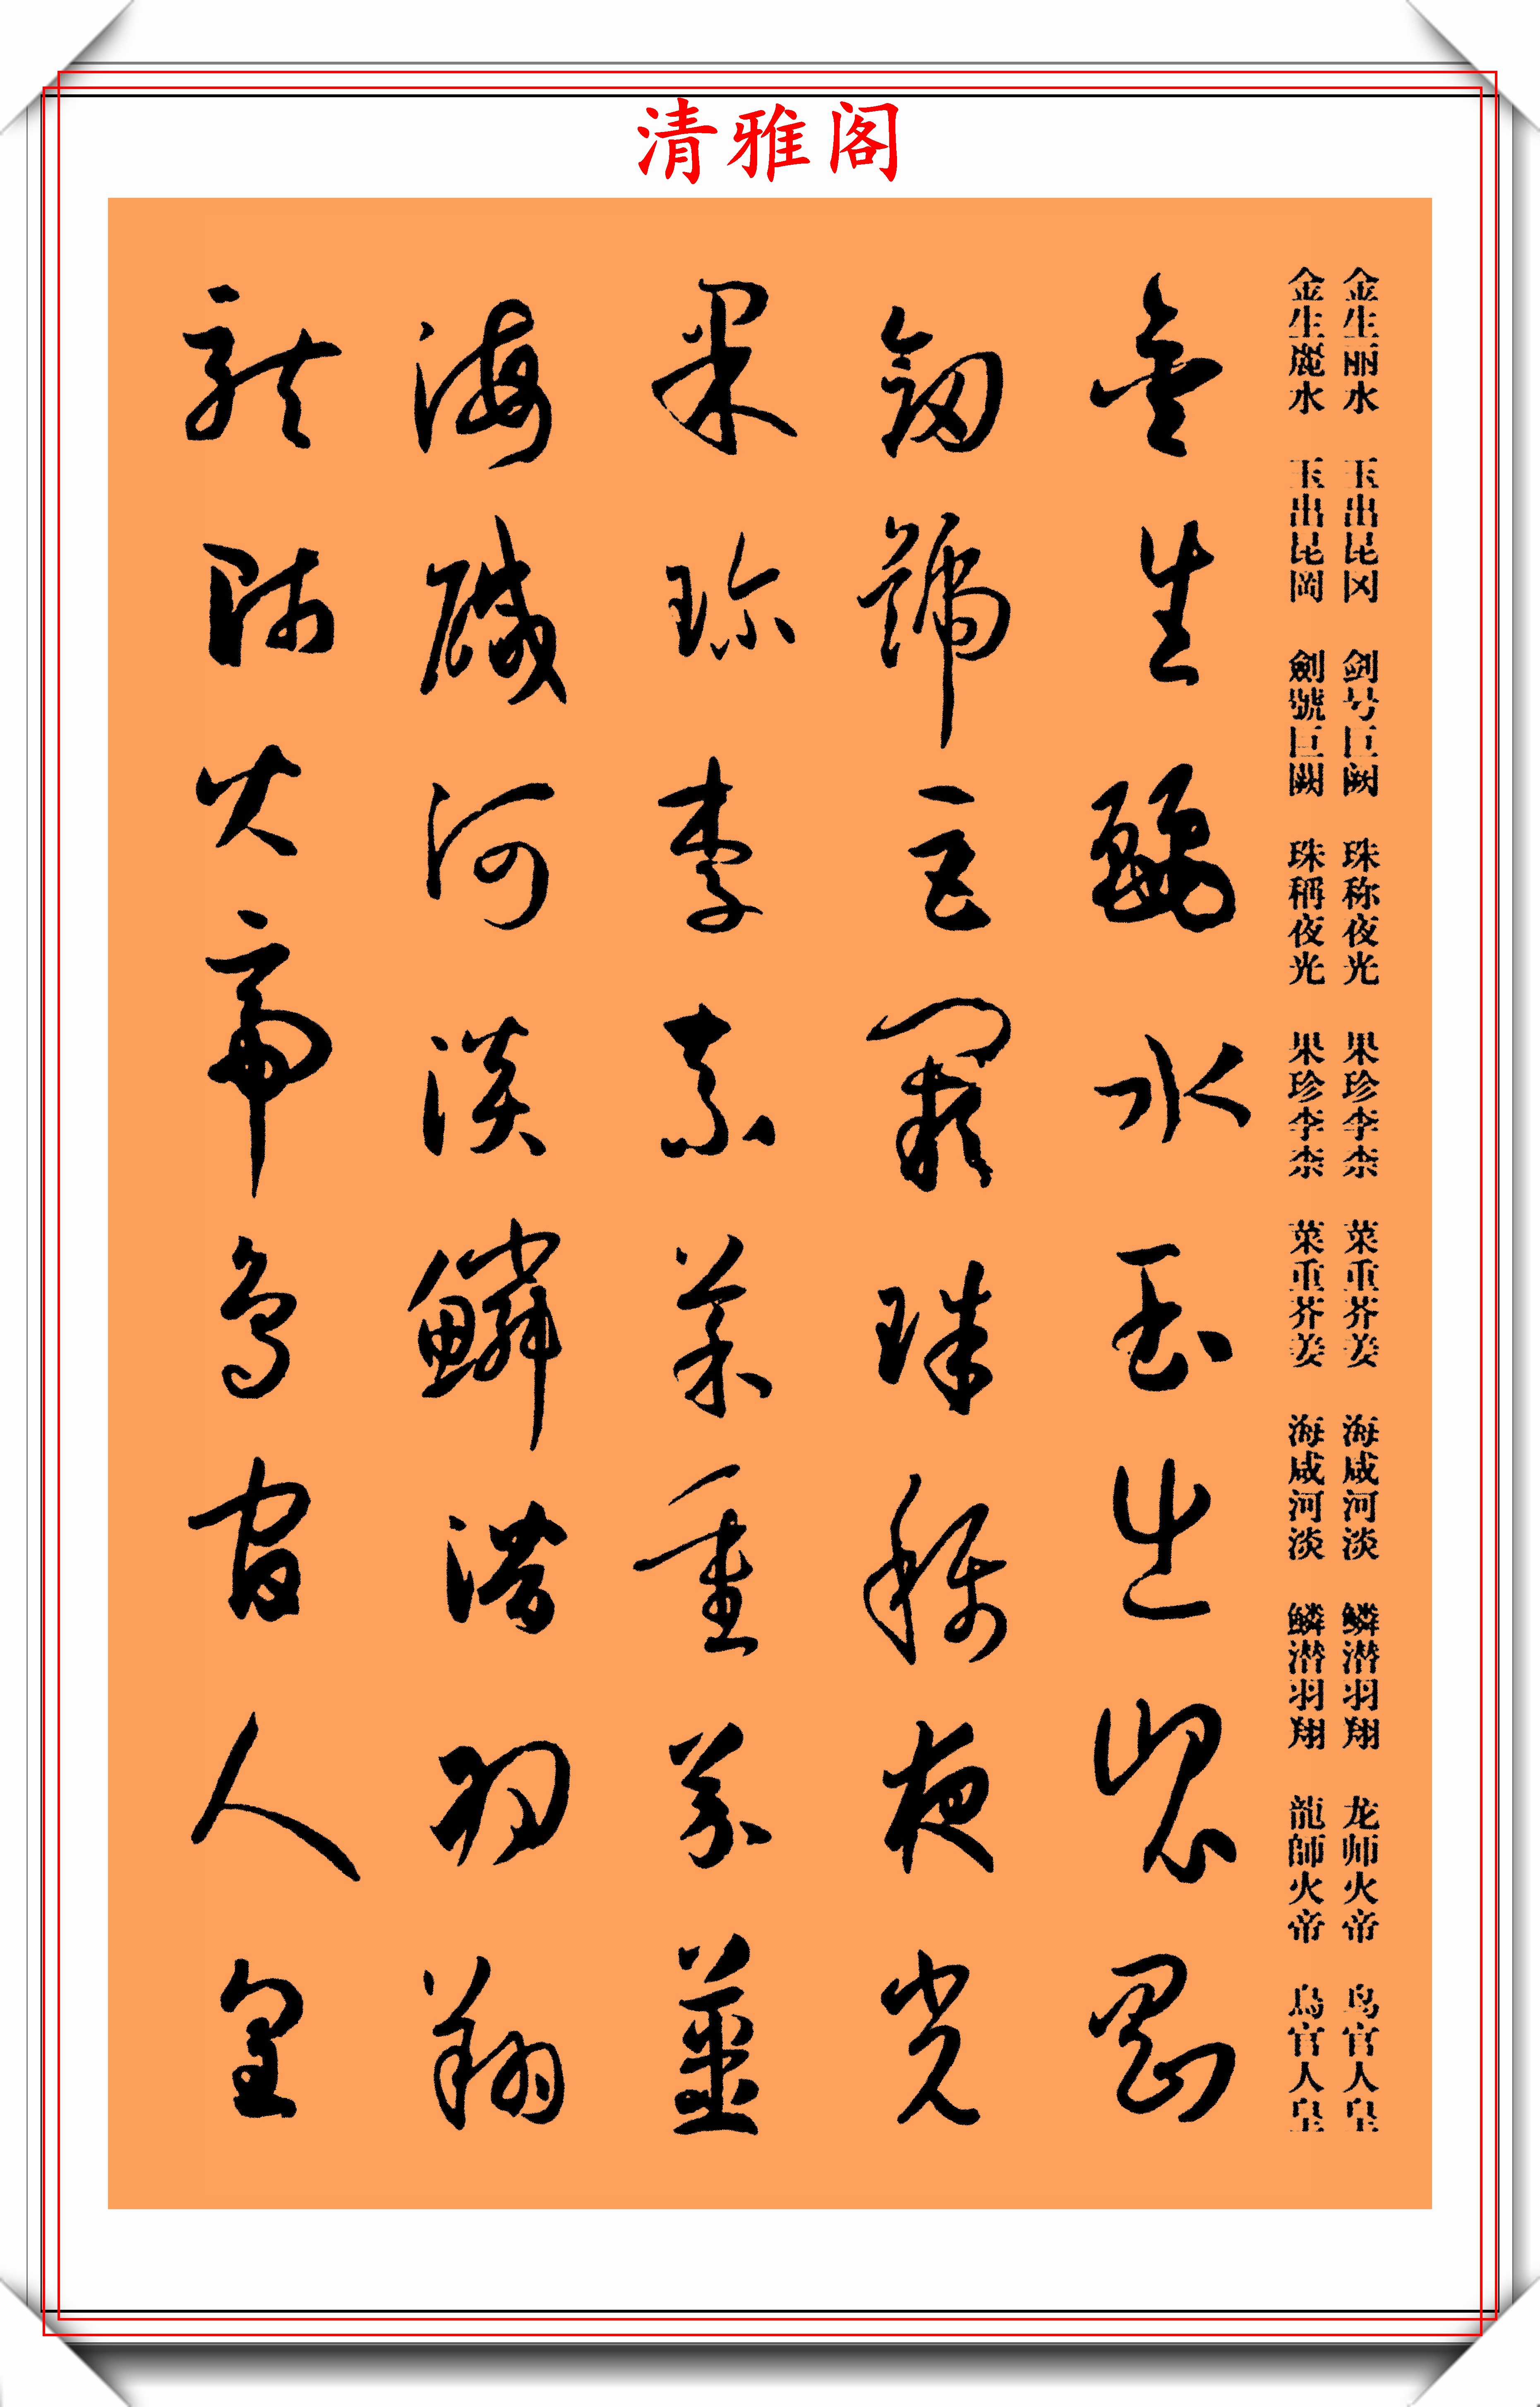 清雅阁
金生丽水 玉出昆冈 剑号巨阙 珠称夜光 果珍李柰 菜重芥姜 海咸河淡 鳞潜羽翔 龙师火帝 鸟官人皇
金生麗水 玉出昆岡 劍號巨闕 珠稱夜光 果珍李柰 菜重芥姜 海咸河淡 鱗潜羽翔 龍師火帝 鳥官人皇
金生麗水玉出崑岡
劍號巨闕珠稱夜光
果珍李柰菜重芥薑
海鹹河淡鱗潛羽翔
龍師火帝鳥官人皇